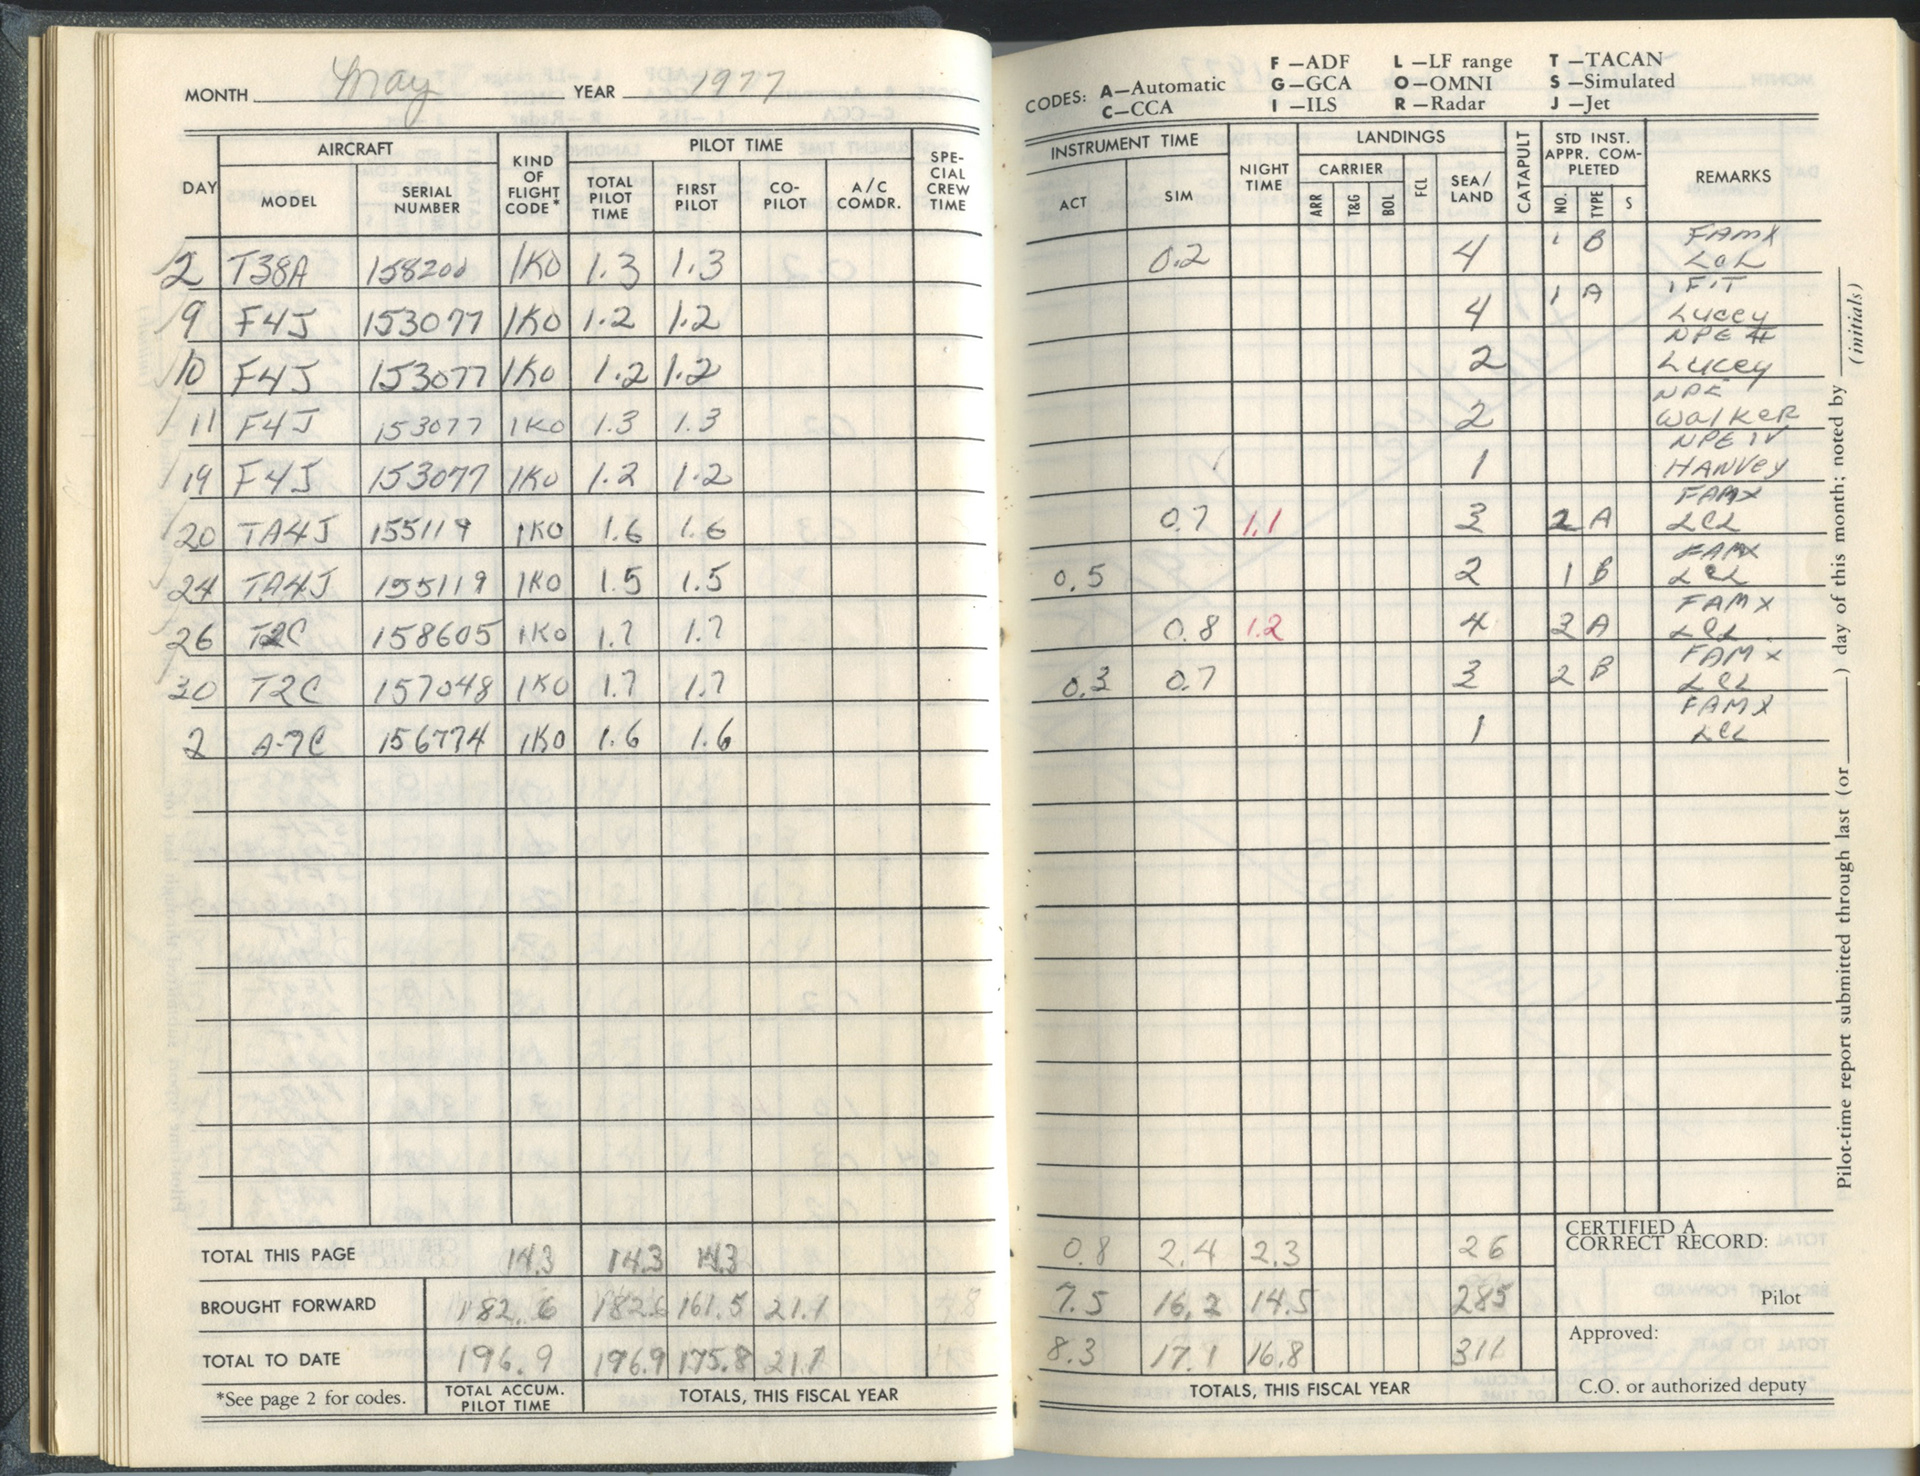 MONTH May YEAR 1977
AIRCRAFT PILOT TIME
DAY MODEL SERIAL NUMBER KIND OF FLIGHT CODE* TOTAL PILOT TIME FIRST PILOT CO-PILOT A/C COMDR. SPE-CIAL CREW TIME
2 T38A 158200 1K0 1.3 1.3
9 F4J 153077 1K0 1.2 1.2
10 F4J 153077 1K0 1.2 1.2
11 F4J 153077 1K0 1.3 1.3
19 F4J 153077 1K0 1.2 1.2
20 TA4J 155119 1K0 1.6 1.6
24 TA4J 155119 1K0 1.5 1.5
26 T2C 158605 1K0 1.7 1.7
30 T2C 157048 1K0 1.7 1.7
2 A-7C 156774 1K0 1.6 1.6
TOTAL THIS PAGE 14.3 14.3 14.3
BROUGHT FORWARD 182.6 182.6 161.5 21.1
TOTAL TO DATE 196.9 196.9 175.8 21.1
*See page 2 for codes. TOTAL ACCUM. PILOT TIME TOTALS, THIS FISCAL YEAR
CODES: A—Automatic F—ADF L—LF range T—TACAN
G—GCA O—OMNI S—Simulated
C—CCA I—ILS R—Radar J—Jet
INSTRUMENT TIME NIGHT TIME LANDINGS CATAPULT STD INST. APPR. COM-PLETED REMARKS
ACT SIM CARRIER ARR T&G BOL FCL SEA/LAND NO. TYPE S
0.2 4 1 B FAMX LCL
4 1 A 1 FIT Lucey
2 NPE # Lucey
2 NPE Walker
1 NPE IV HANVEY
0.7 1.1 3 2 A FAMX LCL
0.5 2 1 B FAMX LCL
0.8 1.2 4 2 A FAMX LCL
0.3 0.7 3 2 B FAMX LCL
1 FAMX LCL
0.8 2.4 2.3 26 CERTIFIED A CORRECT RECORD:
7.5 16.2 14.5 285 Pilot
8.3 17.1 16.8 311 Approved:
TOTALS, THIS FISCAL YEAR C.O. or authorized deputy
Pilot-time report submitted through last (or ) day of this month; noted by
(initials)